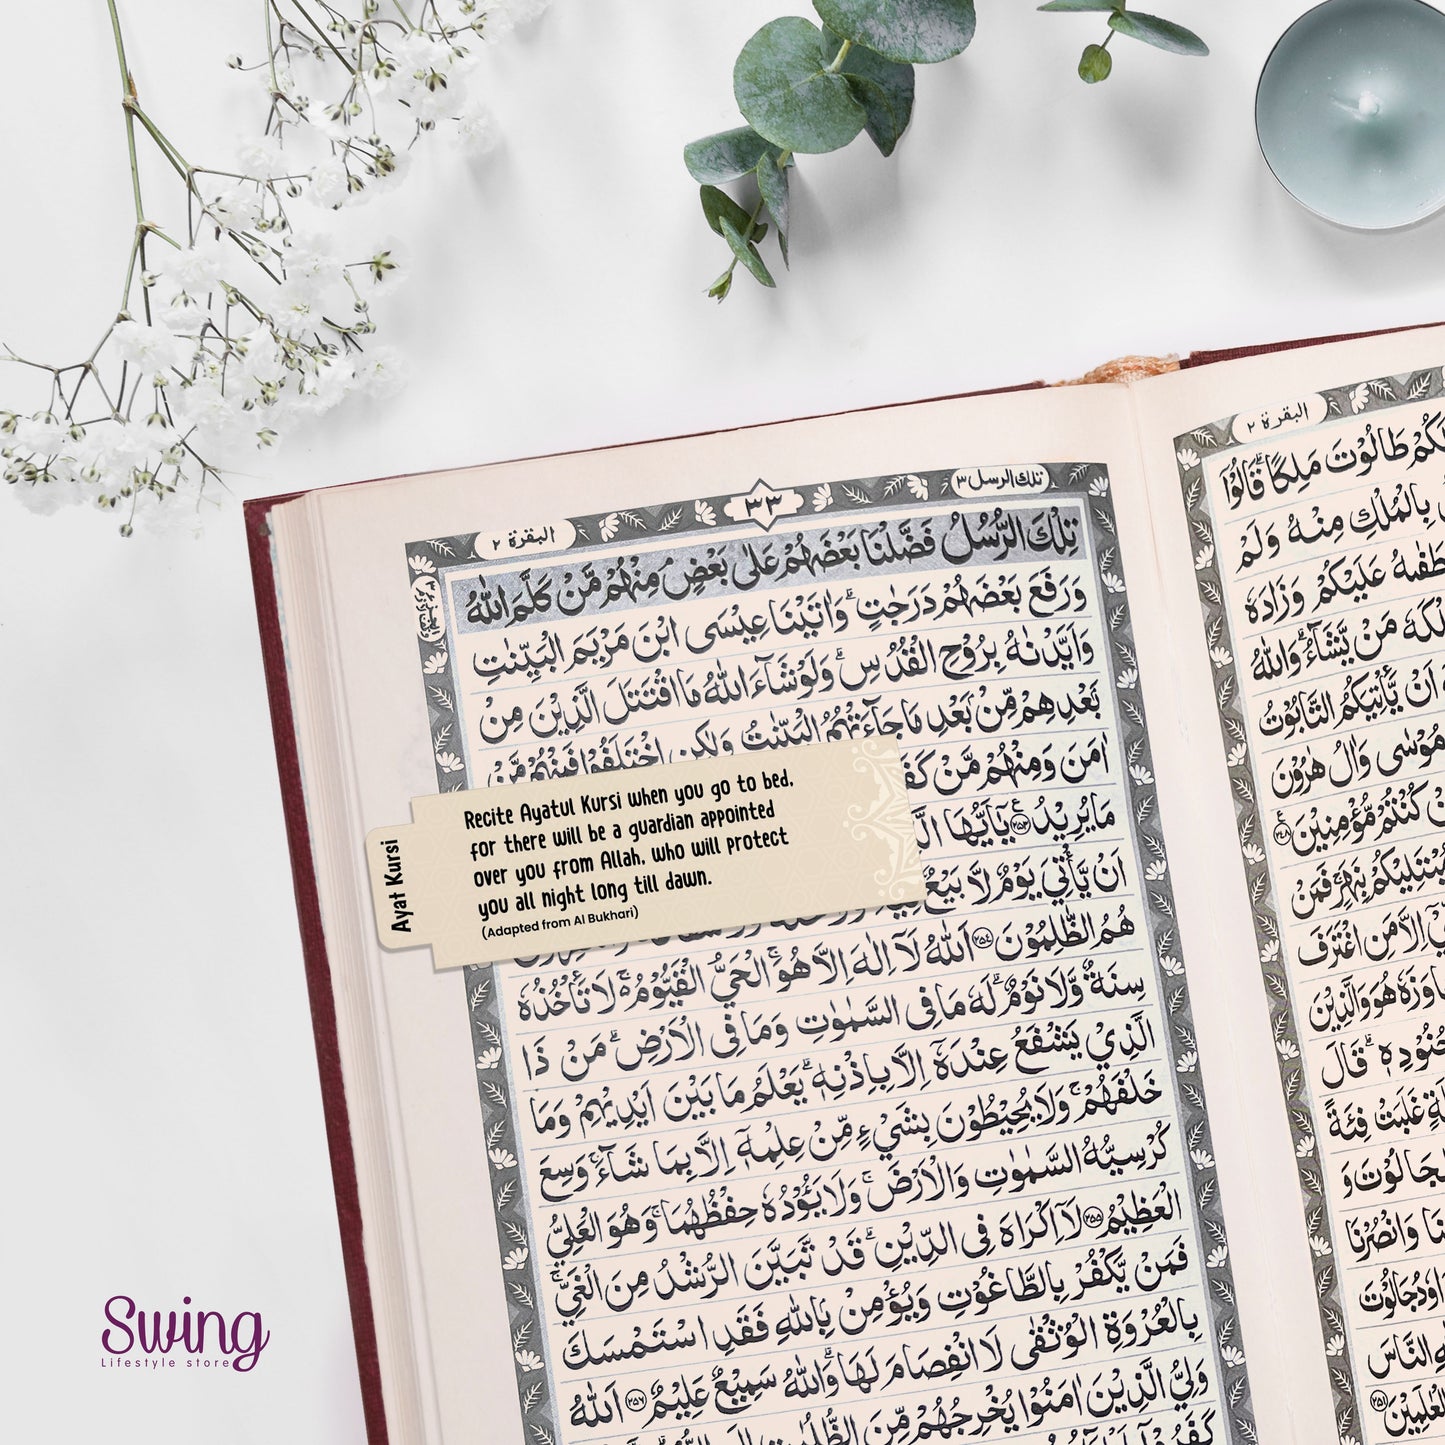 البقرة ٢
٣٣
تلك الرسل ٣
تِلْكَ الرُّسُلُ فَضَّلْنَا بَعْضَهُمْ عَلٰى بَعْضٍ ۘ مِنْهُمْ مَّنْ كَلَّمَ اللّٰهُ
وَرَفَعَ بَعْضَهُمْ دَرَجٰتٍ ؕ وَاٰتَيْنَا عِيْسَى ابْنَ مَرْيَمَ الْبَيِّنٰتِ
وَاَيَّدْنٰهُ بِرُوْحِ الْقُدُسِ ؕ وَلَوْ شَآءَ اللّٰهُ مَا اقْتَتَلَ الَّذِيْنَ مِنْ
بَعْدِهِمْ مِّنْۢ بَعْدِ مَا جَآءَتْهُمُ الْبَيِّنٰتُ وَلٰكِنِ اخْتَلَفُوْا فَمِنْهُمْ مَّنْ
اٰمَنَ وَمِنْهُمْ مَّنْ كَفَ
مَا يُرِيْدُ ۝٢٥٣ يٰۤاَيُّهَا الَّ
اَنْ يَّاْتِيَ يَوْمٌ لَّا بَيْعٌ
هُمُ الظّٰلِمُوْنَ ۝٢٥٤ اَللّٰهُ لَاۤ اِلٰهَ اِلَّا هُوَ ۚ الْحَيُّ الْقَيُّوْمُ ۚ لَا تَاْخُذُهٗ
سِنَةٌ وَّلَا نَوْمٌ ؕ لَهٗ مَا فِى السَّمٰوٰتِ وَمَا فِى الْاَرْضِ ؕ مَنْ ذَا
الَّذِيْ يَشْفَعُ عِنْدَهٗۤ اِلَّا بِاِذْنِهٖ ؕ يَعْلَمُ مَا بَيْنَ اَيْدِيْهِمْ وَمَا
خَلْفَهُمْ ۚ وَلَا يُحِيْطُوْنَ بِشَيْءٍ مِّنْ عِلْمِهٖۤ اِلَّا بِمَا شَآءَ ۚ وَسِعَ
كُرْسِيُّهُ السَّمٰوٰتِ وَالْاَرْضَ ۚ وَلَا يَـُٔوْدُهٗ حِفْظُهُمَا ۚ وَهُوَ الْعَلِيُّ
الْعَظِيْمُ ۝٢٥٥ لَاۤ اِكْرَاهَ فِى الدِّيْنِ ۙ قَدْ تَّبَيَّنَ الرُّشْدُ مِنَ الْغَيِّ ۚ
فَمَنْ يَّكْفُرْ بِالطَّاغُوْتِ وَيُؤْمِنْۢ بِاللّٰهِ فَقَدِ اسْتَمْسَكَ
بِالْعُرْوَةِ الْوُثْقٰى لَا انْفِصَامَ لَهَا ؕ وَاللّٰهُ سَمِيْعٌ عَلِيْمٌ ۝٢٥٧ اَللّٰهُ
وَلِيُّ الَّذِيْنَ اٰمَنُوْا يُخْرِجُهُمْ مِّنَ الظُّلُمٰتِ
Ayat Kursi
Recite Ayatul Kursi when you go to bed,
for there will be a guardian appointed
over you from Allah, who will protect
you all night long till dawn.
(Adapted from Al Bukhari)
البقرة ٢
طَالُوْتَ مَلِكًا ؕ قَالُوْۤا
بِالْمُلْكِ مِنْهُ وَلَمْ
عَلَيْكُمْ وَزَادَهٗ
مَنْ يَّشَآءُ ؕ وَاللّٰهُ
اَنْ يَّاْتِيَكُمُ التَّابُوْتُ
مُوْسٰى وَاٰلُ هٰرُوْنَ
كُنْتُمْ مُّؤْمِنِيْنَ ۝٢٤٨
مُبْتَلِيْكُمْ بِنَهَرٍ ۚ فَمَنْ
اِلَّا مَنِ اغْتَرَفَ
هُوَ وَالَّذِيْنَ
قَالَ
غَلَبَتْ فِئَةً
لِجَالُوْتَ وَ
وَانْصُرْنَا
دَاوٗدُ جَالُوْتَ
النَّاسَ
Swing
Lifestyle store